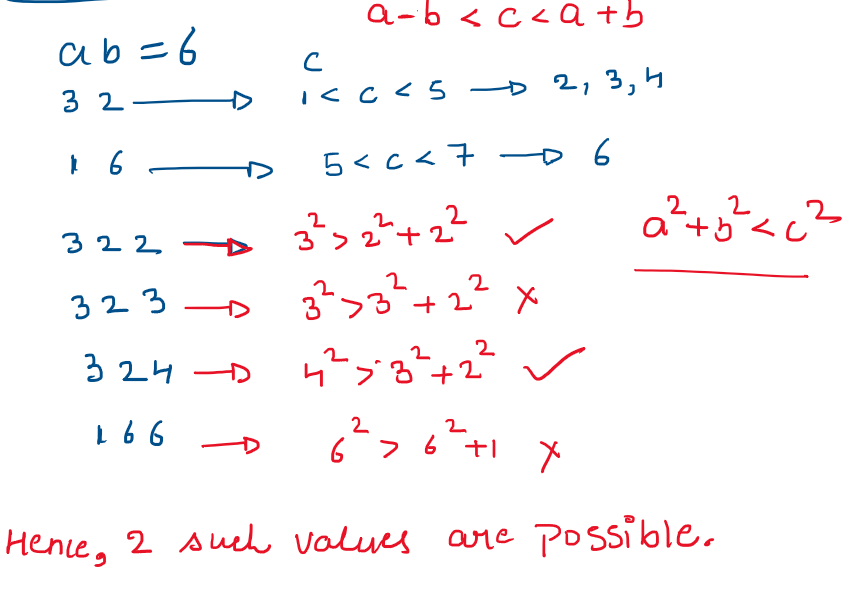 a-b < c < a+b
ab = 6
c
3 2 → 1 < c < 5 → 2, 3, 4
1 6 → 5 < c < 7 → 6
3 2 2 → 3² > 2² + 2² ✓
a² + b² < c²
3 2 3 → 3² > 3² + 2² ✗
3 2 4 → 4² > 3² + 2² ✓
1 6 6 → 6² > 6² + 1 ✗
Hence, 2 such values are possible.